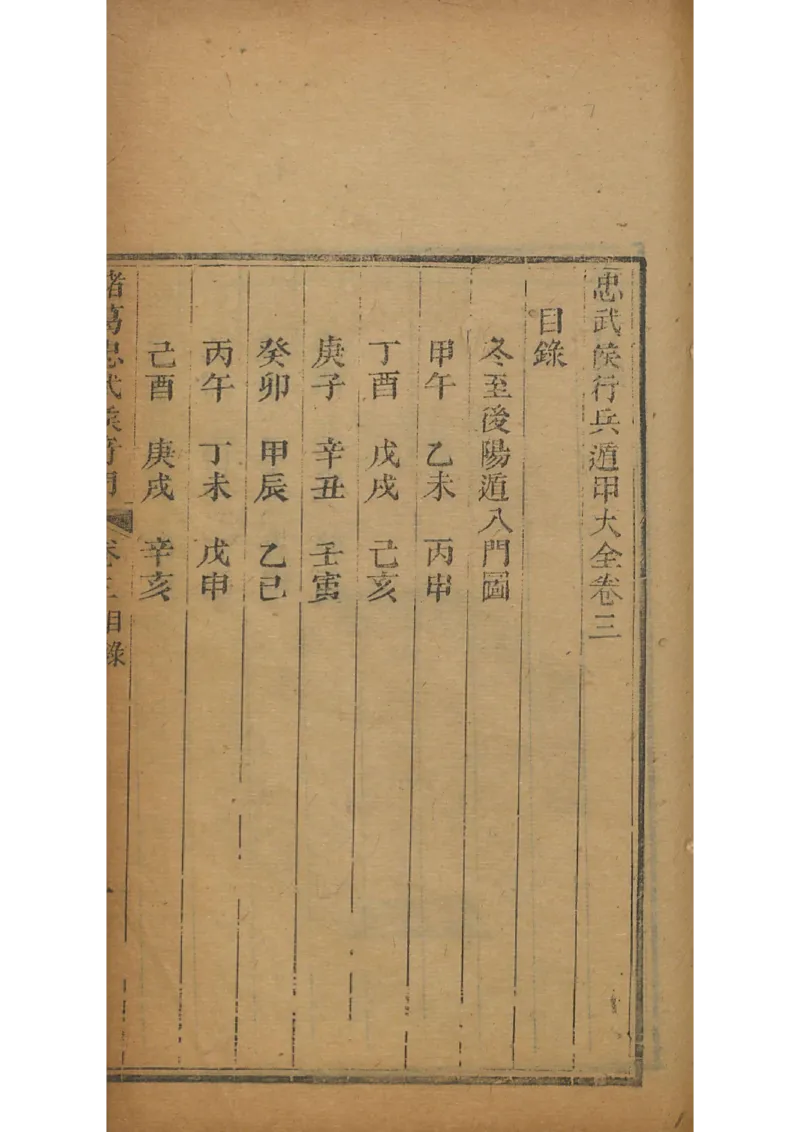 忠武侯行兵遁甲大全卷三
目錄
冬至後陽遁八門圖
甲午 乙未 丙申
丁酉 戊戌 己亥
庚子 辛丑 壬寅
癸卯 甲辰 乙巳
丙午 丁未 戊申
己酉 庚戌 辛亥
諸葛忠武侯奇門 卷三目錄